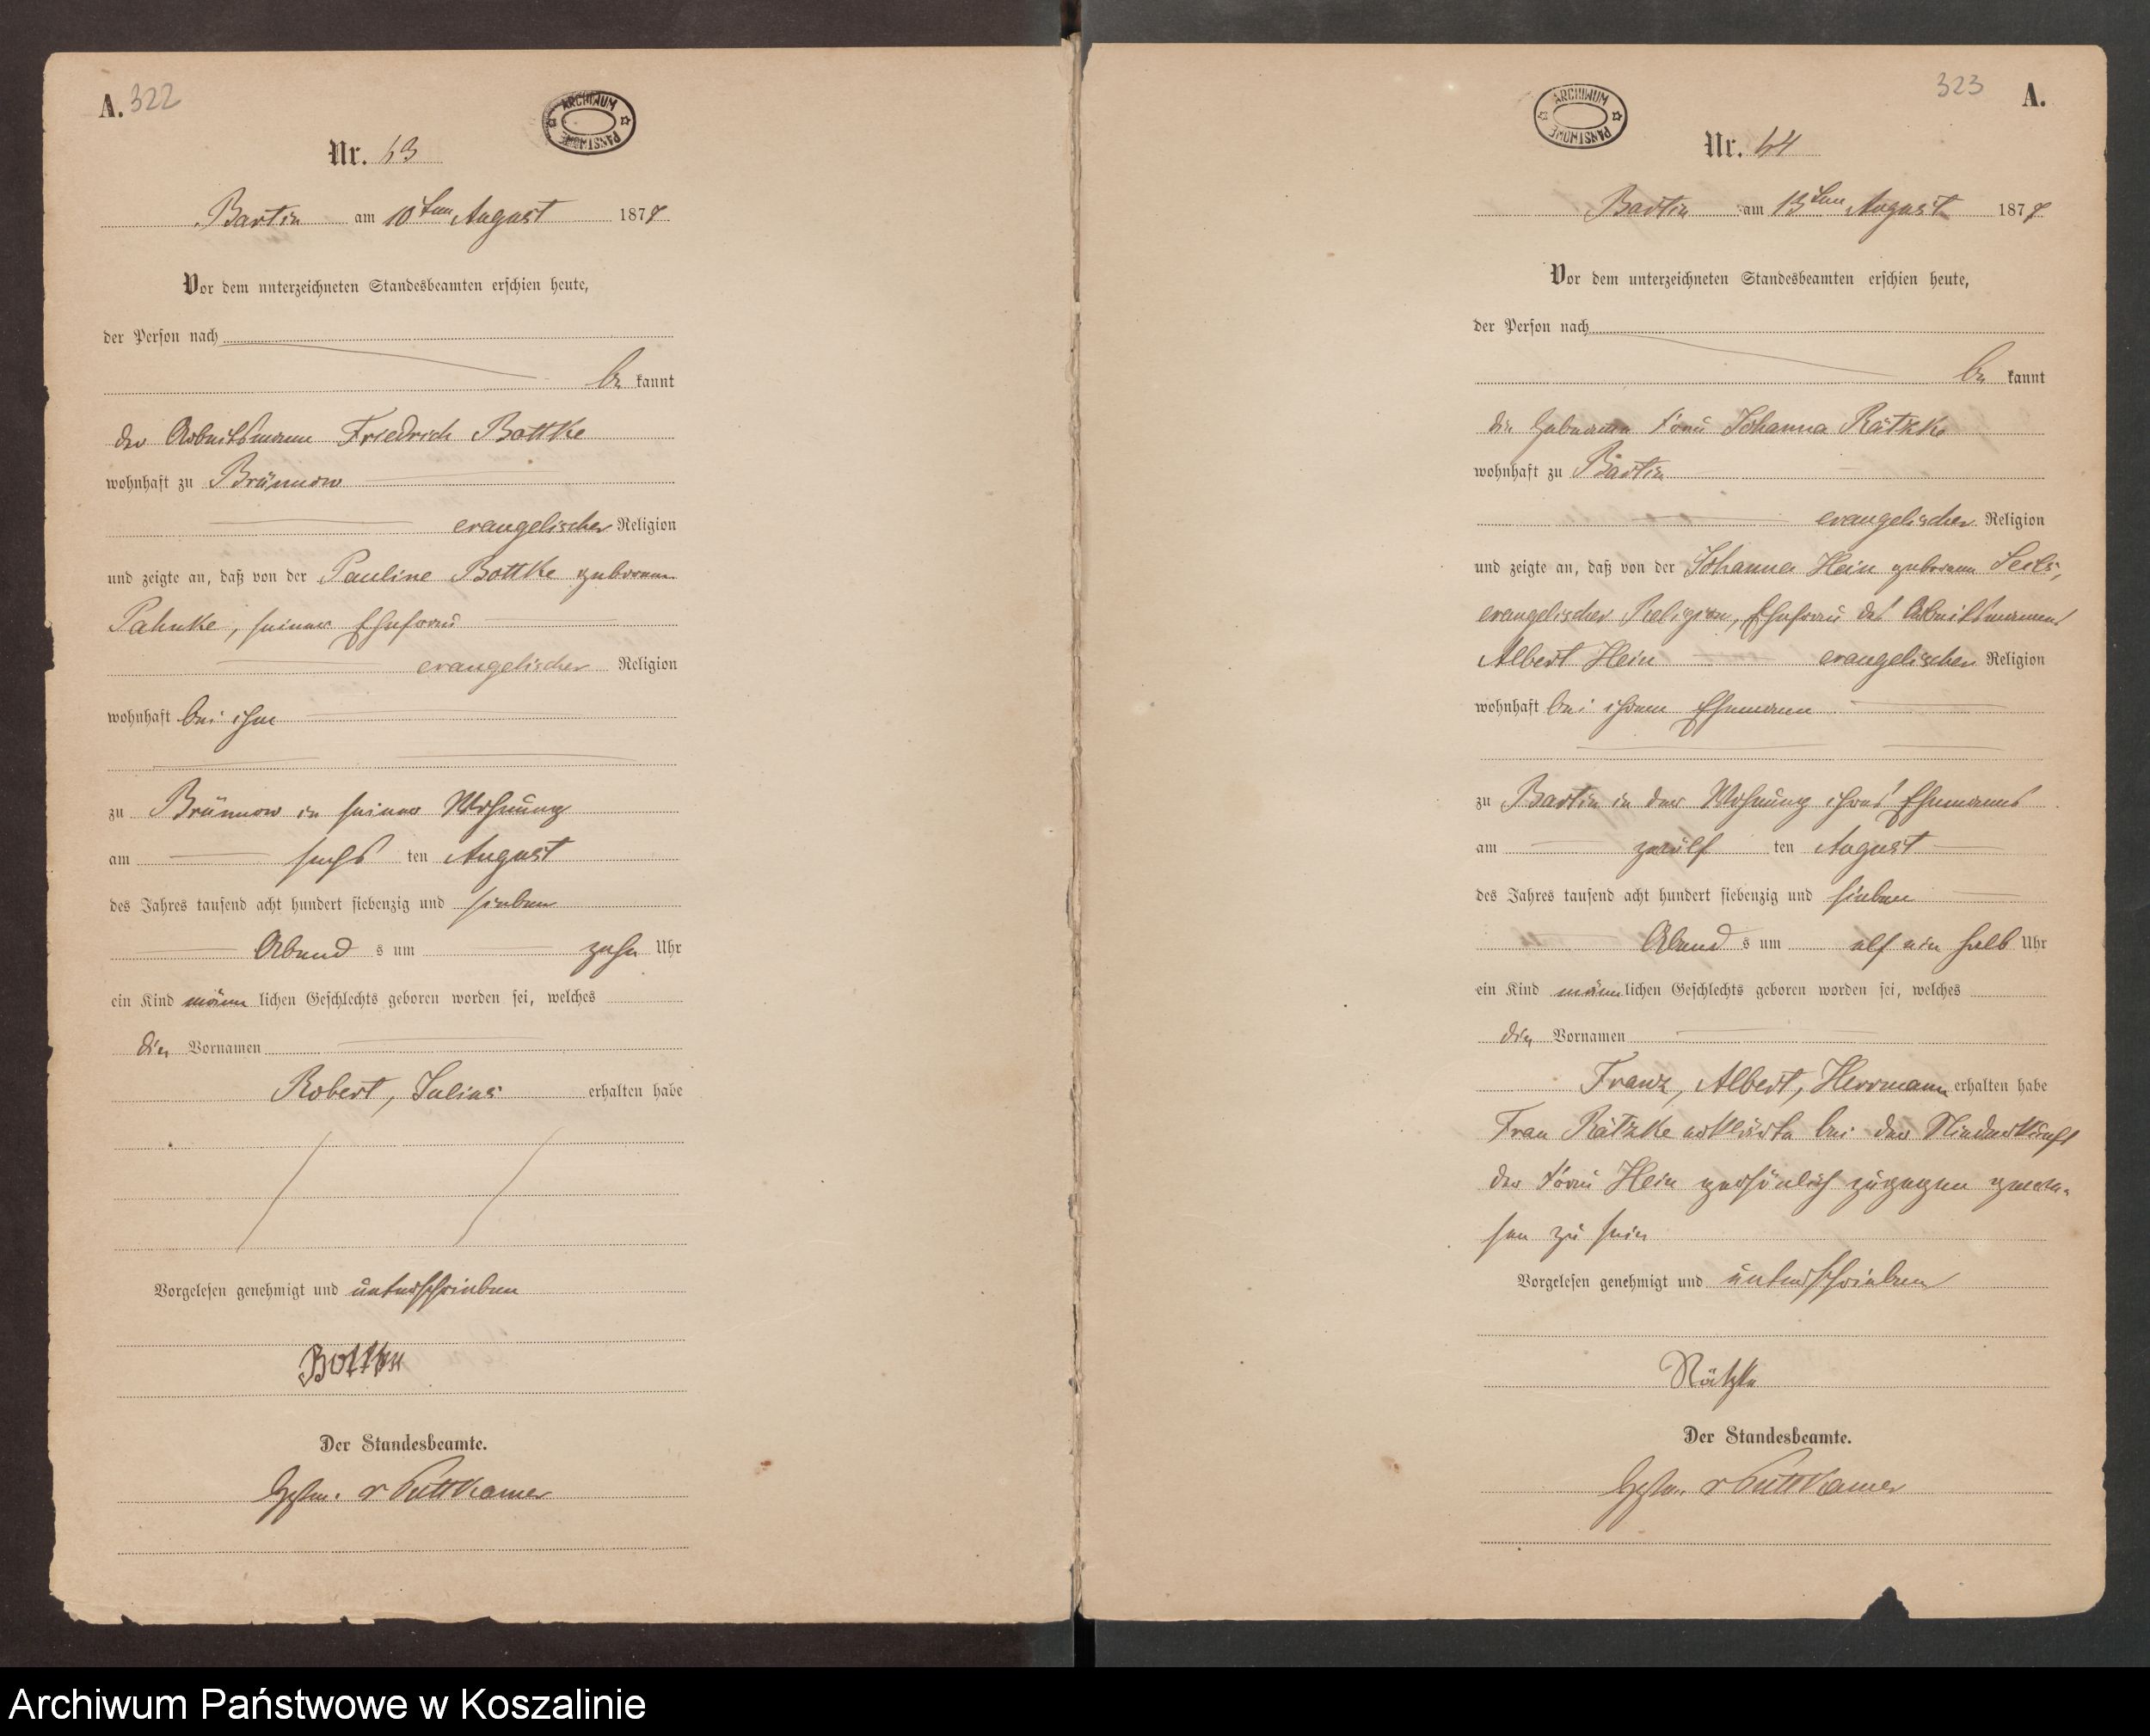 A. 322
ARCHIWUM PAŃSTWOWE
Nr. 63
Bartin am 10ten August 1877
Vor dem unterzeichneten Standesbeamten erschien heute,
der Person nach
be kannt
der Arbeitsmann Friedrich Bottke
wohnhaft zu Brünnow
evangelischer Religion
und zeigte an, daß von der Pauline Bottke geborenen
Pahnke, seiner Ehefrau
evangelischer Religion
wohnhaft bei ihm
zu Brünnow in seiner Wohnung
am sechs ten August
des Jahres tausend acht hundert siebenzig und sieben
Abend s um zehn Uhr
ein Kind männ lichen Geschlechts geboren worden sei, welches
die Vornamen
Robert, Julius erhalten habe
Vorgelesen genehmigt und unterschrieben
Bottke
Der Standesbeamte.
v Puttkamer
323 A.
ARCHIWUM PAŃSTWOWE
Nr. 64
Bartin am 13ten August 1877
Vor dem unterzeichneten Standesbeamten erschien heute,
der Person nach
be kannt
die Hebamme Frau Johanna Rätzke
wohnhaft zu Bartin
evangelischer Religion
und zeigte an, daß von der Johanna Hein geborenen Seils,
evangelischer Religion, Ehefrau des Arbeitsmannes
Albert Hein evangelischer Religion
wohnhaft bei ihrem Ehemann
zu Bartin in der Wohnung ihres Ehemanns
am zwölf ten August
des Jahres tausend acht hundert siebenzig und sieben
Abend s um elf ein halb Uhr
ein Kind männ lichen Geschlechts geboren worden sei, welches
die Vornamen
Franz, Albert, Herrmann erhalten habe
Frau Rätzke erklärte bei der Niederkunft
der Frau Hein persönlich zugegen gewe-
sen zu sein
Vorgelesen genehmigt und unterschrieben
Rätzke
Der Standesbeamte.
v Puttkamer
Archiwum Państwowe w Koszalinie